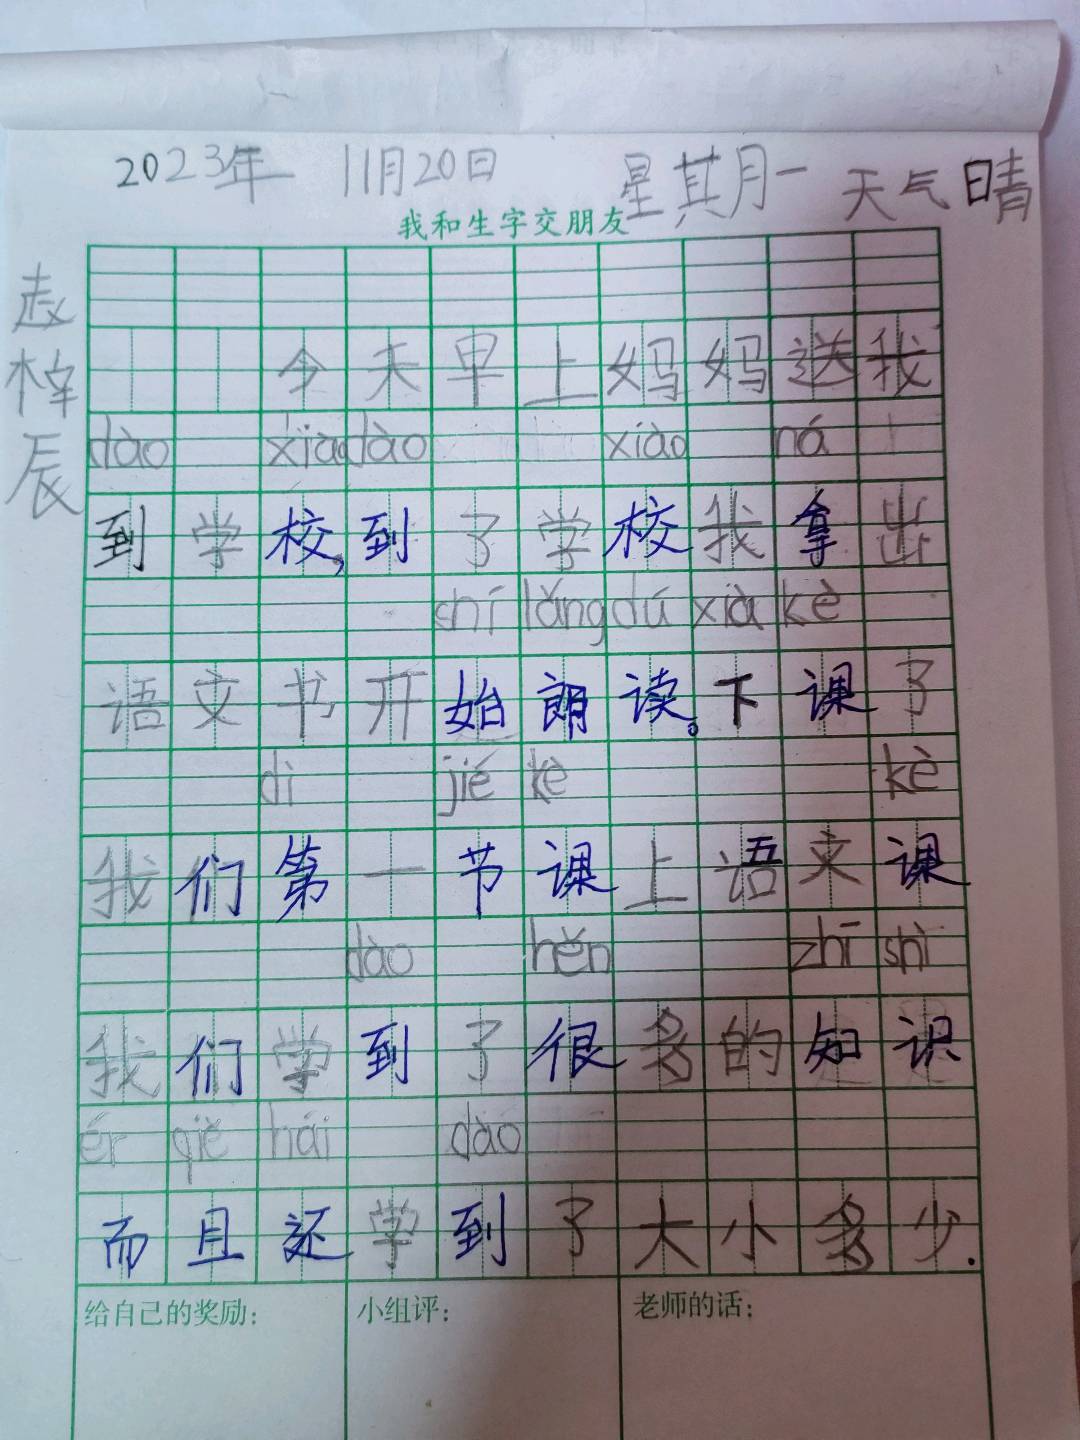 2023年 11月20日 星其月一 天气晴
我和生字交朋友
赵梓辰
今天早上妈妈送我
dào xiào dào xiào ná
到学校,到了学校我拿出
shí lǎng dú xià kè
语文书开始朗读。下课了
dì jié kè kè
我们第一节课上语文课
dào hěn zhī shi
我们学到了很多的知识
ér qiě hái dào
而且还学到了大小多少.
给自己的奖励: 小组评: 老师的话: